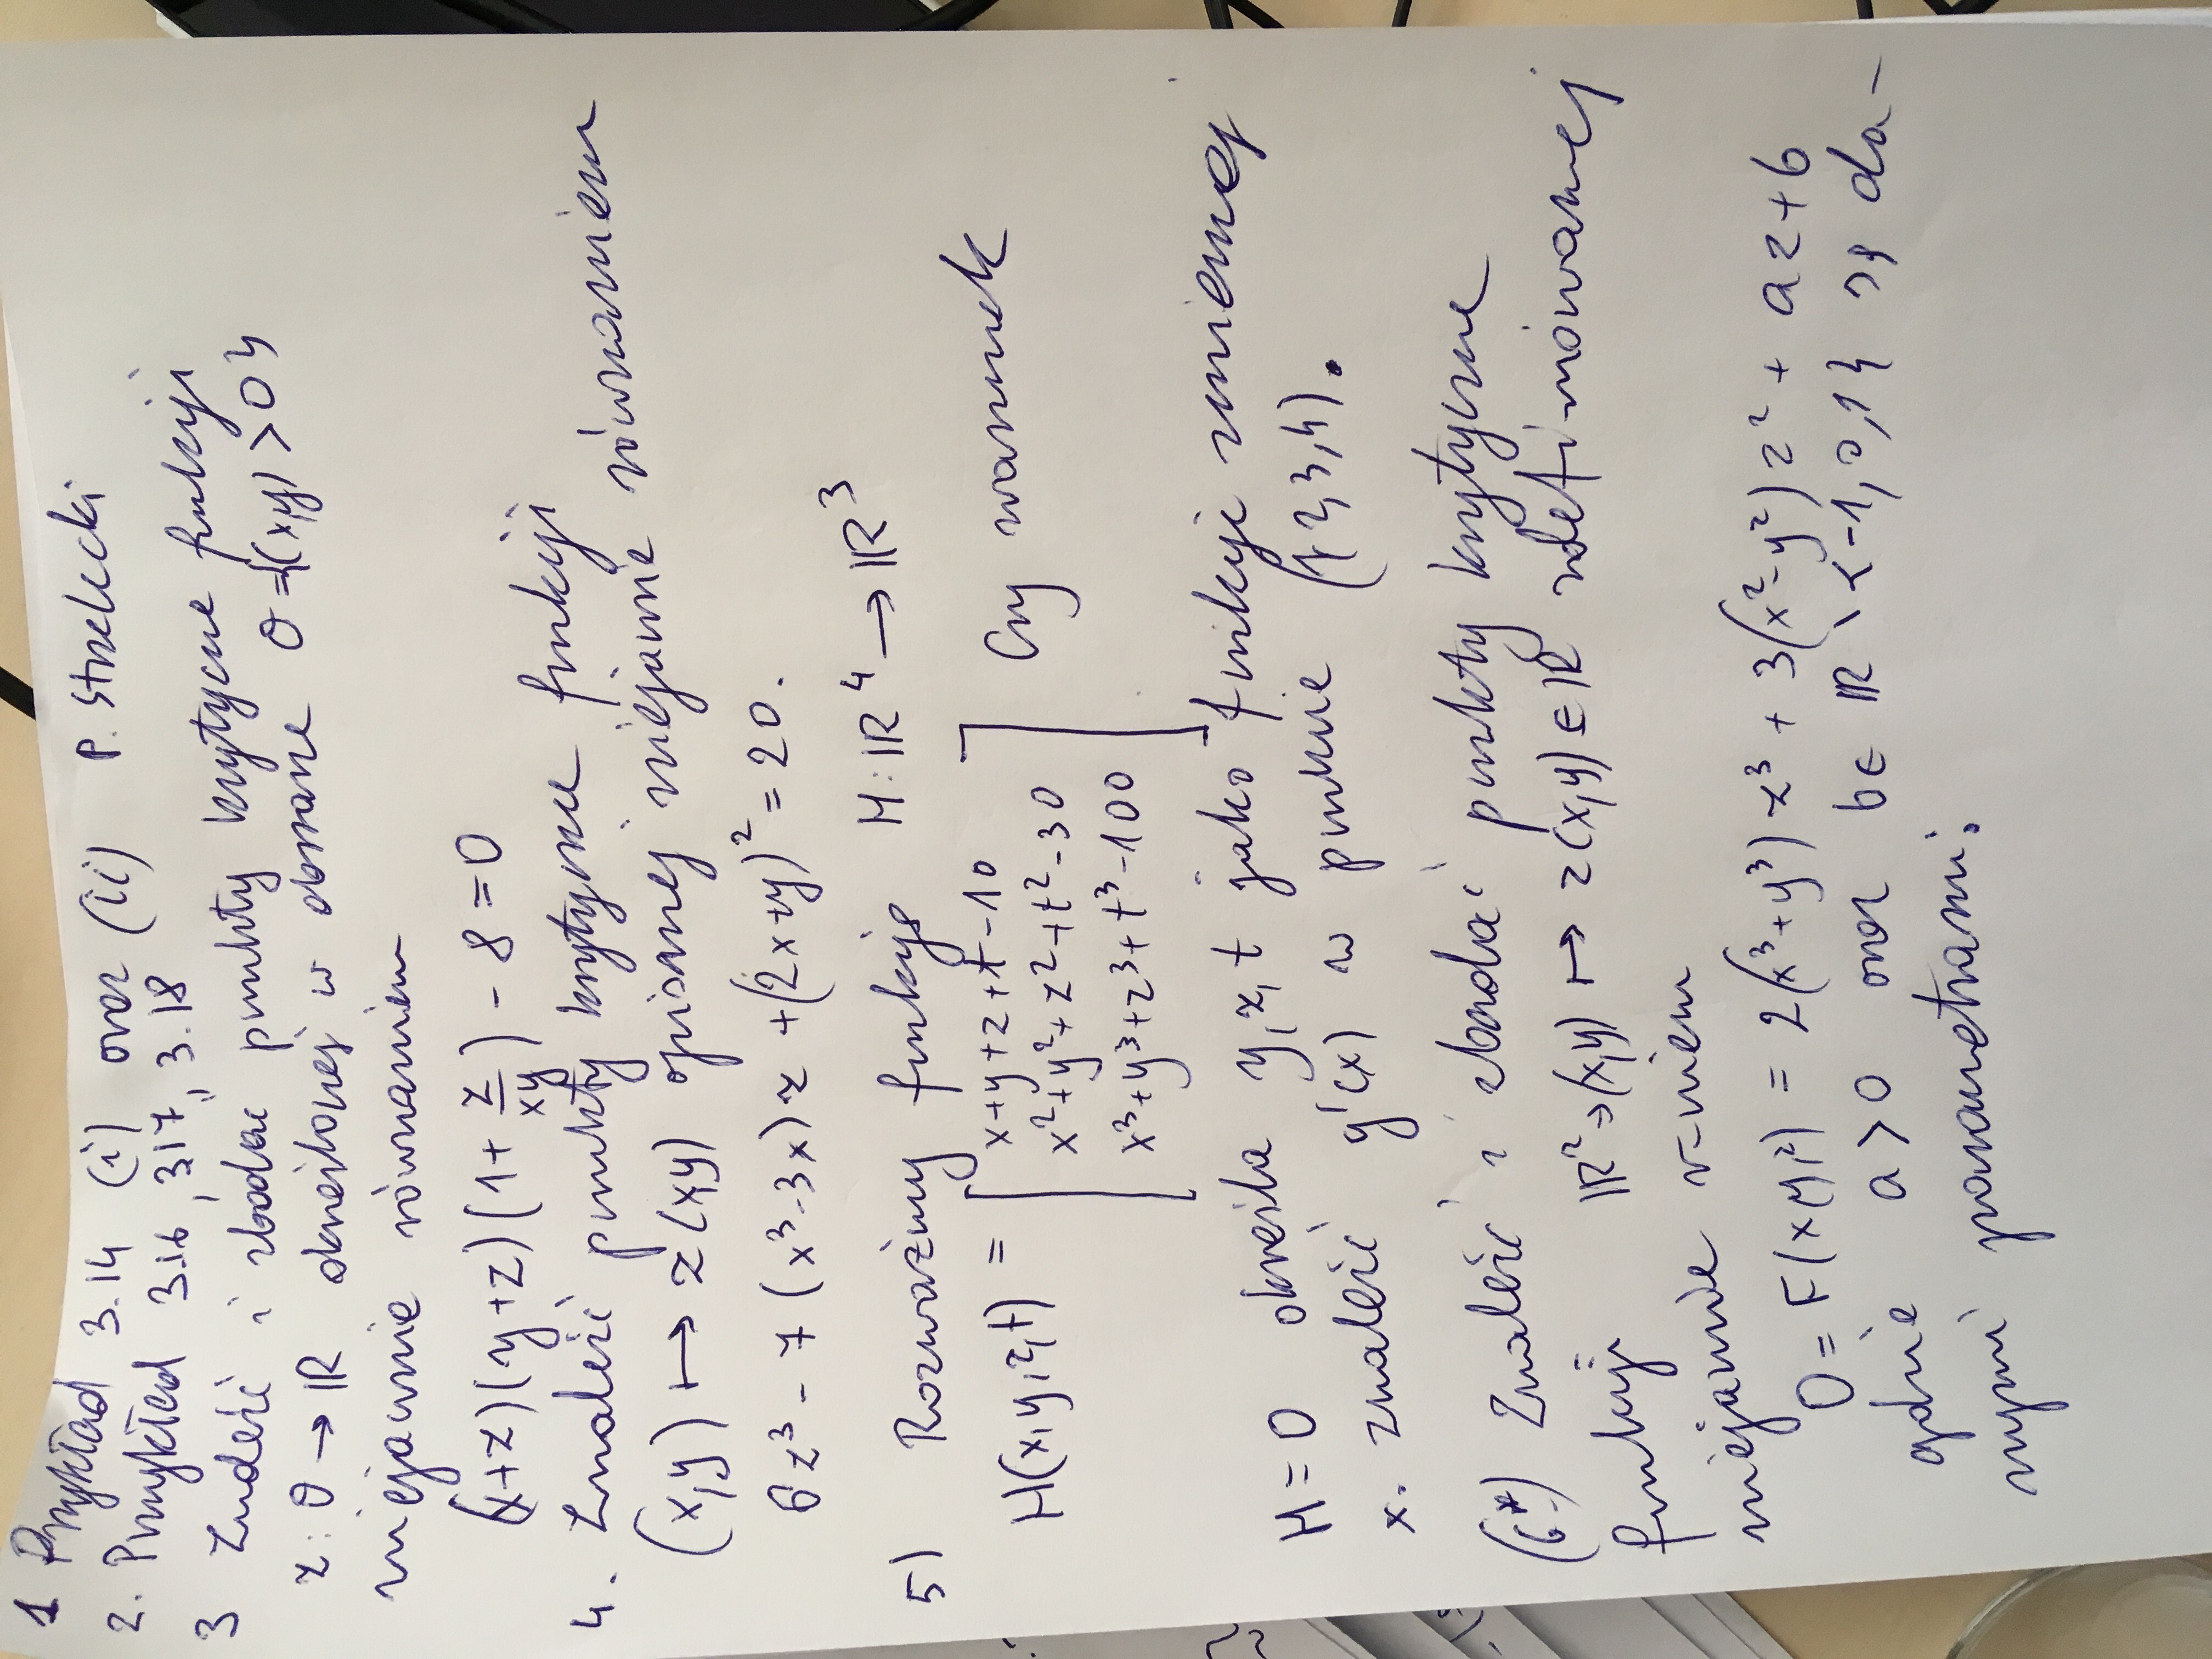 1 Przykład 3.14 (i) oraz (ii) P. Strzelecki
2. Przykład 3.16, 3.17, 3.18
3 Znaleźć i zbadać punkty krytyczne funkcji
z: O → ℝ określonej w obszarze O = {(x,y) > 0}
niejawnie równaniem
(x+z)(y+z)(1+ z/xy) - 8 = 0
4. Znaleźć punkty krytyczne funkcji
(x,y) ↦ z(x,y) opisanej niejawnie równaniem
6z³ - 7(x³-3x)z + (2x+y)² = 20.
5) Rozważmy funkcję H: ℝ⁴ → ℝ³
H(x,y,z,t) = [ x+y+z+t-10
x²+y²+z²+t²-30
x³+y³+z³+t³-100 ] Czy warunek
H=0 określa y,z,t jako funkcję zmiennej
x. Znaleźć y'(x) w punkcie (1,2,3,4).
(6*) Znaleźć i zbadać punkty krytyczne
funkcji ℝ² ∋ (x,y) ↦ z(x,y) ∈ ℝ zdefiniowanej
niejawnie r-niem
0 = F(x,y,z) = 2(x³+y³) - z³ + 3(x²-y²)z² + az + b
gdzie a > 0 oraz b ∈ ℝ \ {-1,0,1} są da-
nymi parametrami.